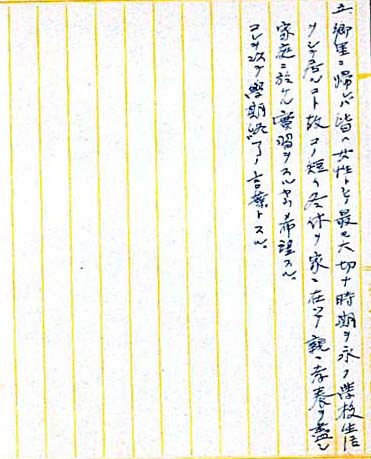 五、郷里ニ帰レバ皆ハ女性トシテ最モ大切ナ時期ヲ永ク學校生活
ヲシテ居ルコト故コノ短イ冬休ヲ家ニ在ツテ親ニ孝養ヲ盡シ
家庭ニ於ケル實習ヲスル 希望スル。
コレヲ以テ學期終了ノ言葉トスル。